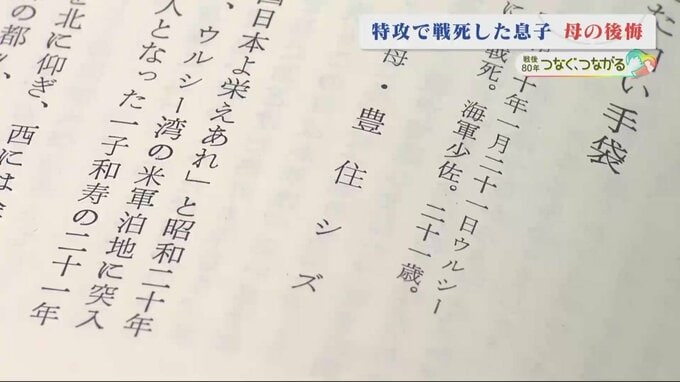 特攻で戦死した息子 母の後悔
戦後
80年
つなぐ、つながる
い手袋
十年一月二十一日ウルシー
に戦死。海軍少佐。二十一歳。
母・豊住シズ
国日本よ栄えあれ」と昭和二十年
、ウルシー湾の米軍泊地に突入
人となった一子和寿の二十一年
を北に仰ぎ、西には
の都